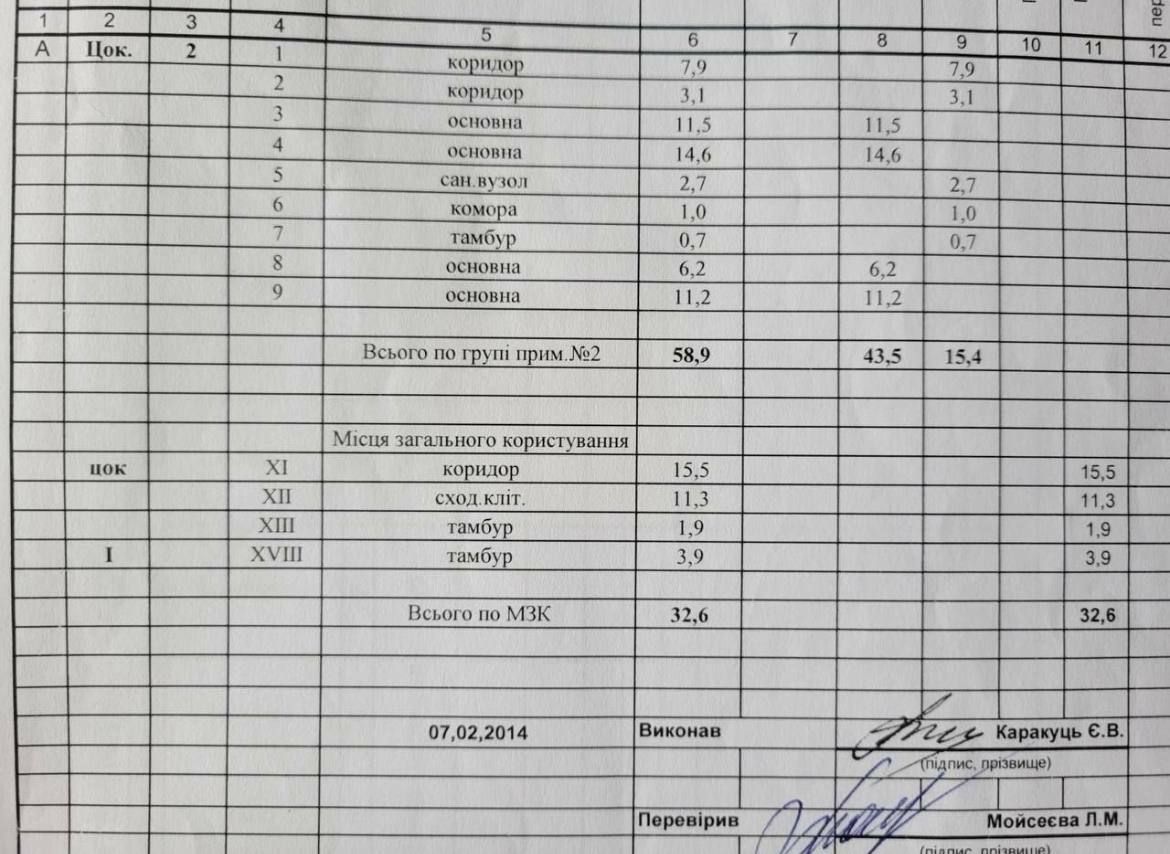 1 2 3 4 5 6 7 8 9 10 11 12
А Цок. 2 1 коридор 7,9 7,9
2 коридор 3,1 3,1
3 основна 11,5 11,5
4 основна 14,6 14,6
5 сан.вузол 2,7 2,7
6 комора 1,0 1,0
7 тамбур 0,7 0,7
8 основна 6,2 6,2
9 основна 11,2 11,2
Всього по групі прим.№2 58,9 43,5 15,4
Місця загального користування
цок XI коридор 15,5 15,5
XII сход.кліт. 11,3 11,3
XIII тамбур 1,9 1,9
I XVIII тамбур 3,9 3,9
Всього по МЗК 32,6 32,6
07,02,2014 Виконав Каракуць Є.В.
(підпис, прізвище)
Перевірив Мойсеєва Л.М.
(підпис, прізвище)